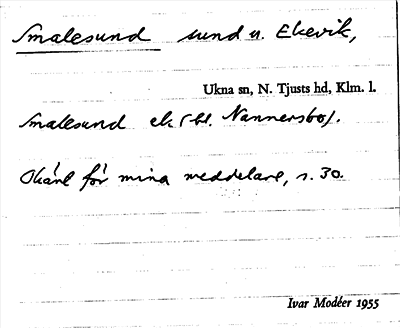 Smalesund sund u. Ekevik,
Ukna sn, N. Tjusts hd, Klm. l.
Smalesund ek (bl. Nannersbo).
Okänt för mina meddelare, s. 30.
Ivar Modéer 1955